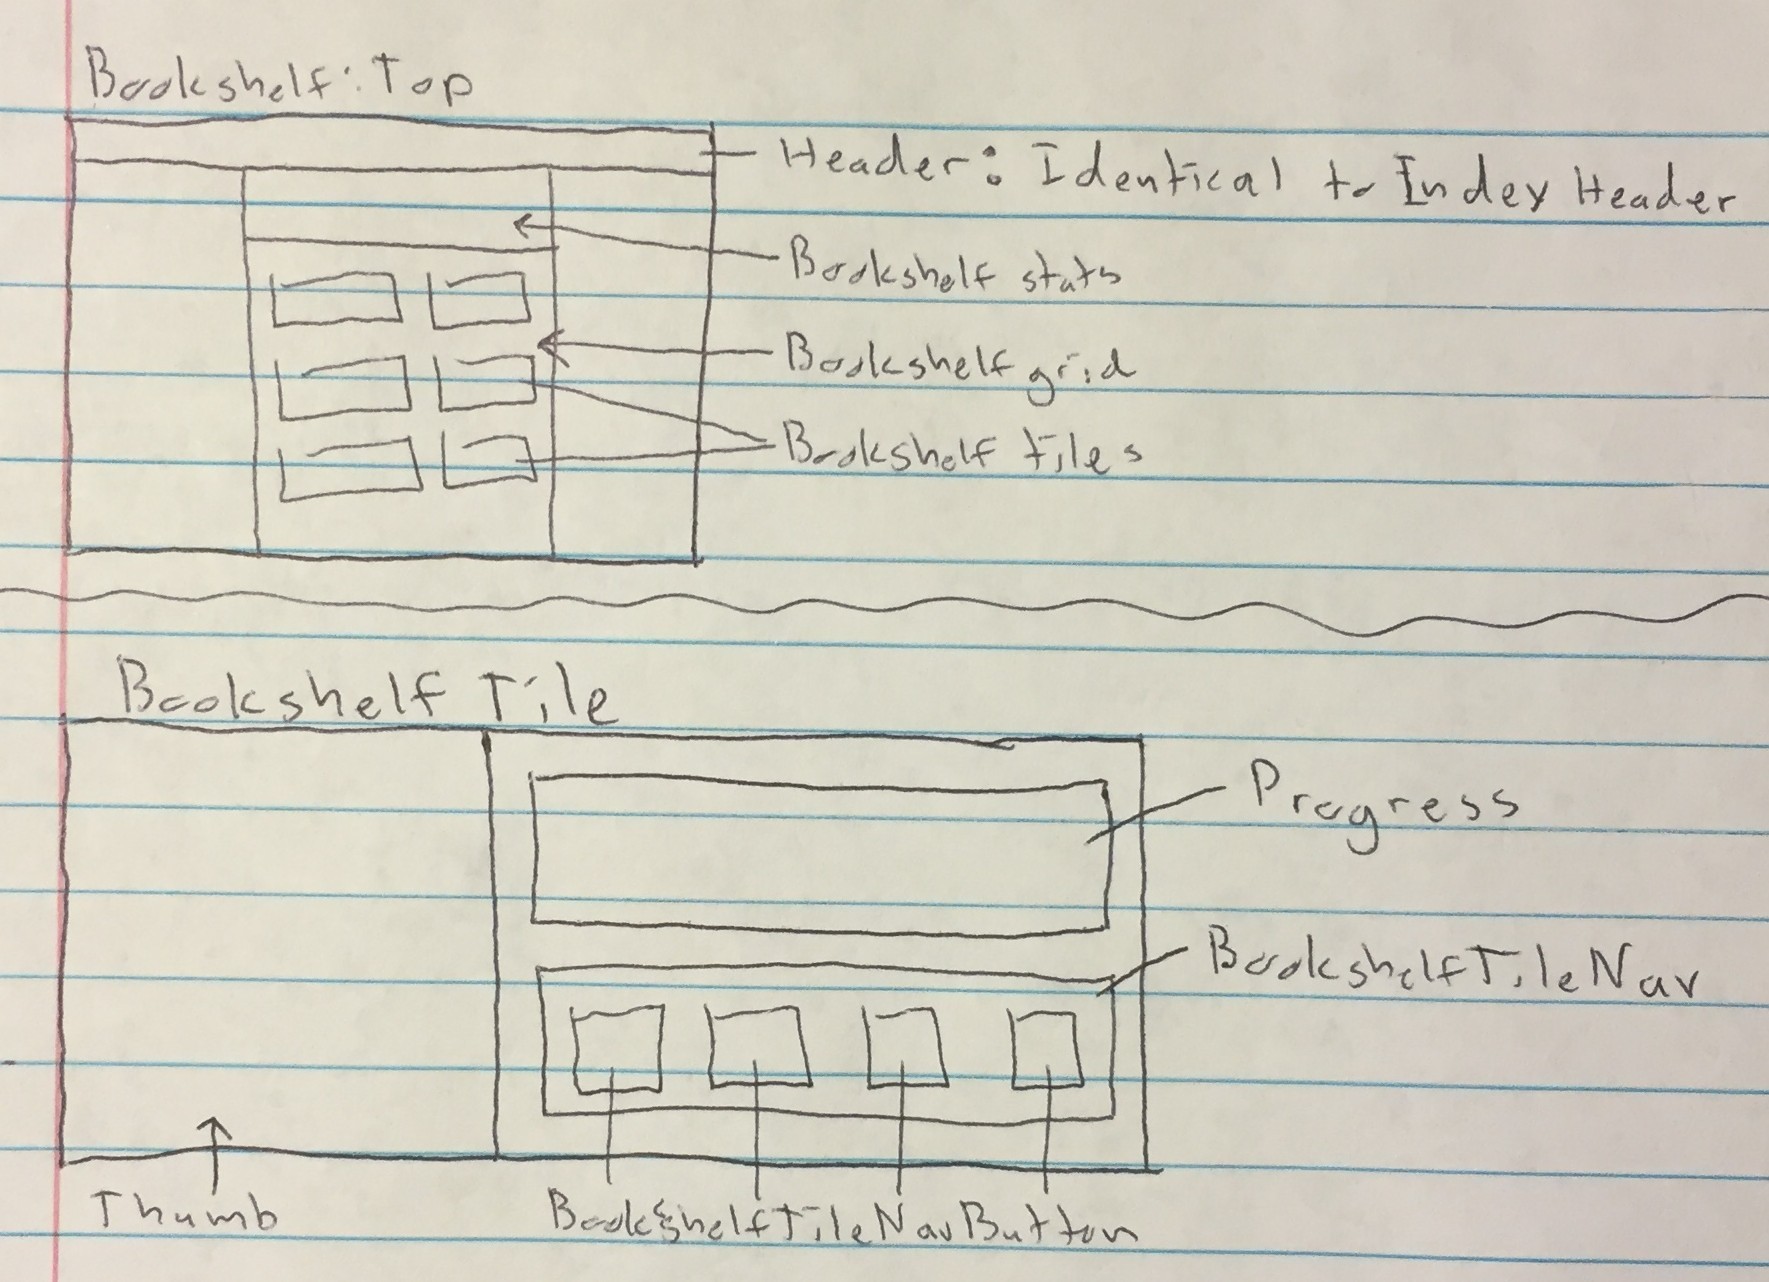 Bookshelf: Top
Header: Identical to Index Header
Bookshelf stats
Bookshelf grid
Bookshelf tiles
Bookshelf Tile
Progress
BookshelfTileNav
Thumb
BookshelfTileNavButton